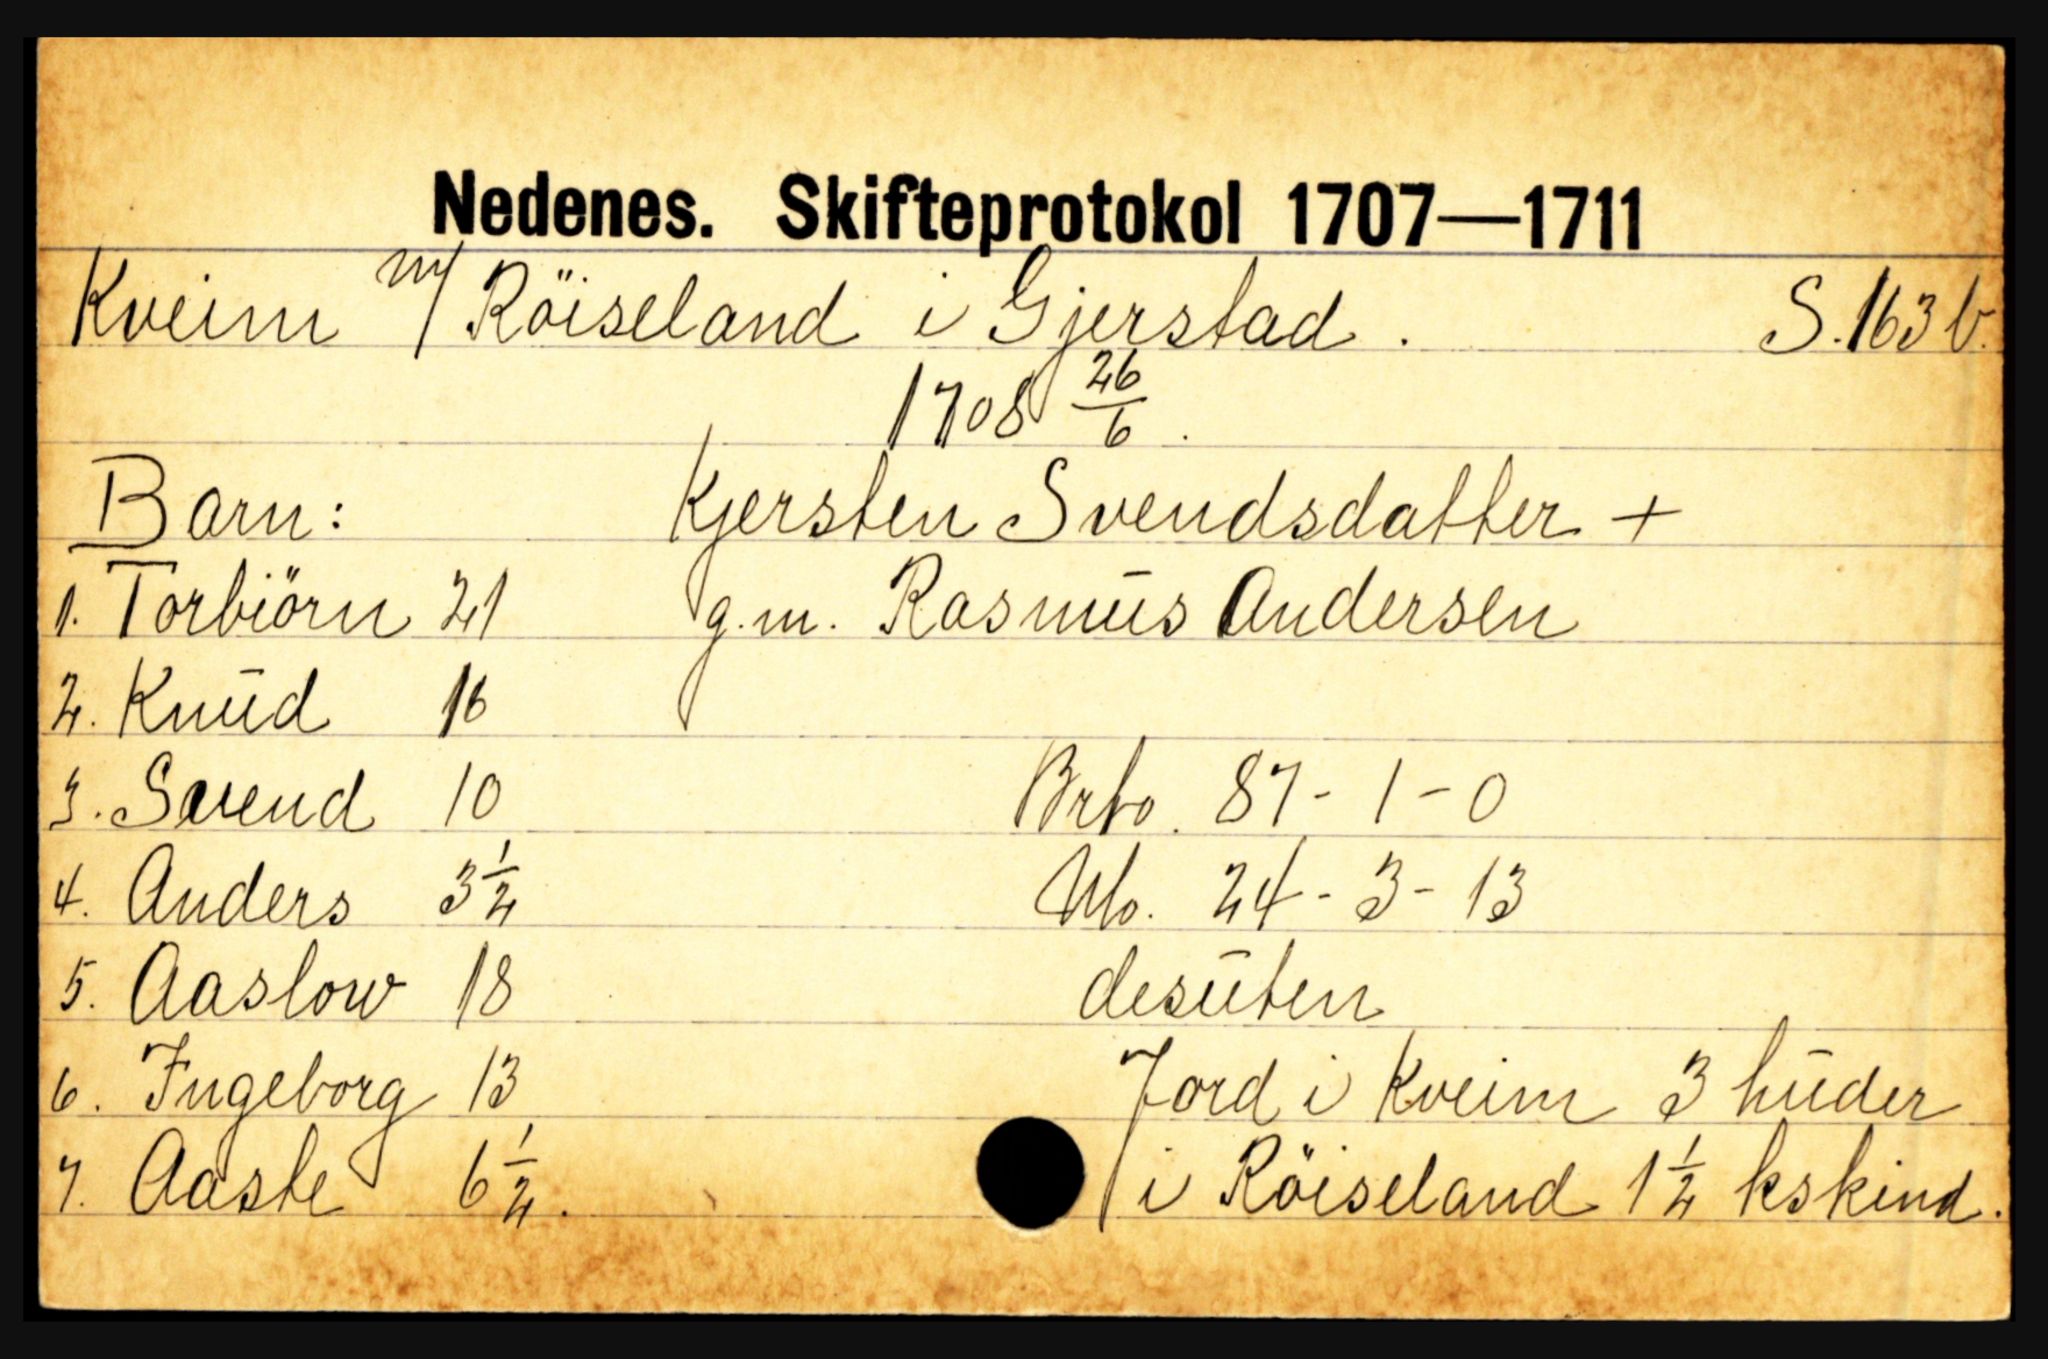 Nedenes. Skifteprotokol 1707—1711
Kveim m/ Röiseland i Gjerstad. S. 163 b.
1708 26/6.
Barn: Kjersten Svendsdatter +
1. Torbiörn 21 g.m. Rasmūs Andersen
2. Knūd 16
3. Svend 10 Brto. 87 - 1 - 0
4. Anders 3 1/2 Nto. 24 - 3 - 13
5. Aaslow 18 desūten
6. Ingeborg 13 Jord i Kveim 3 hūder
7. Aaste 6 1/2. i Röiseland 1 1/2 kskind.